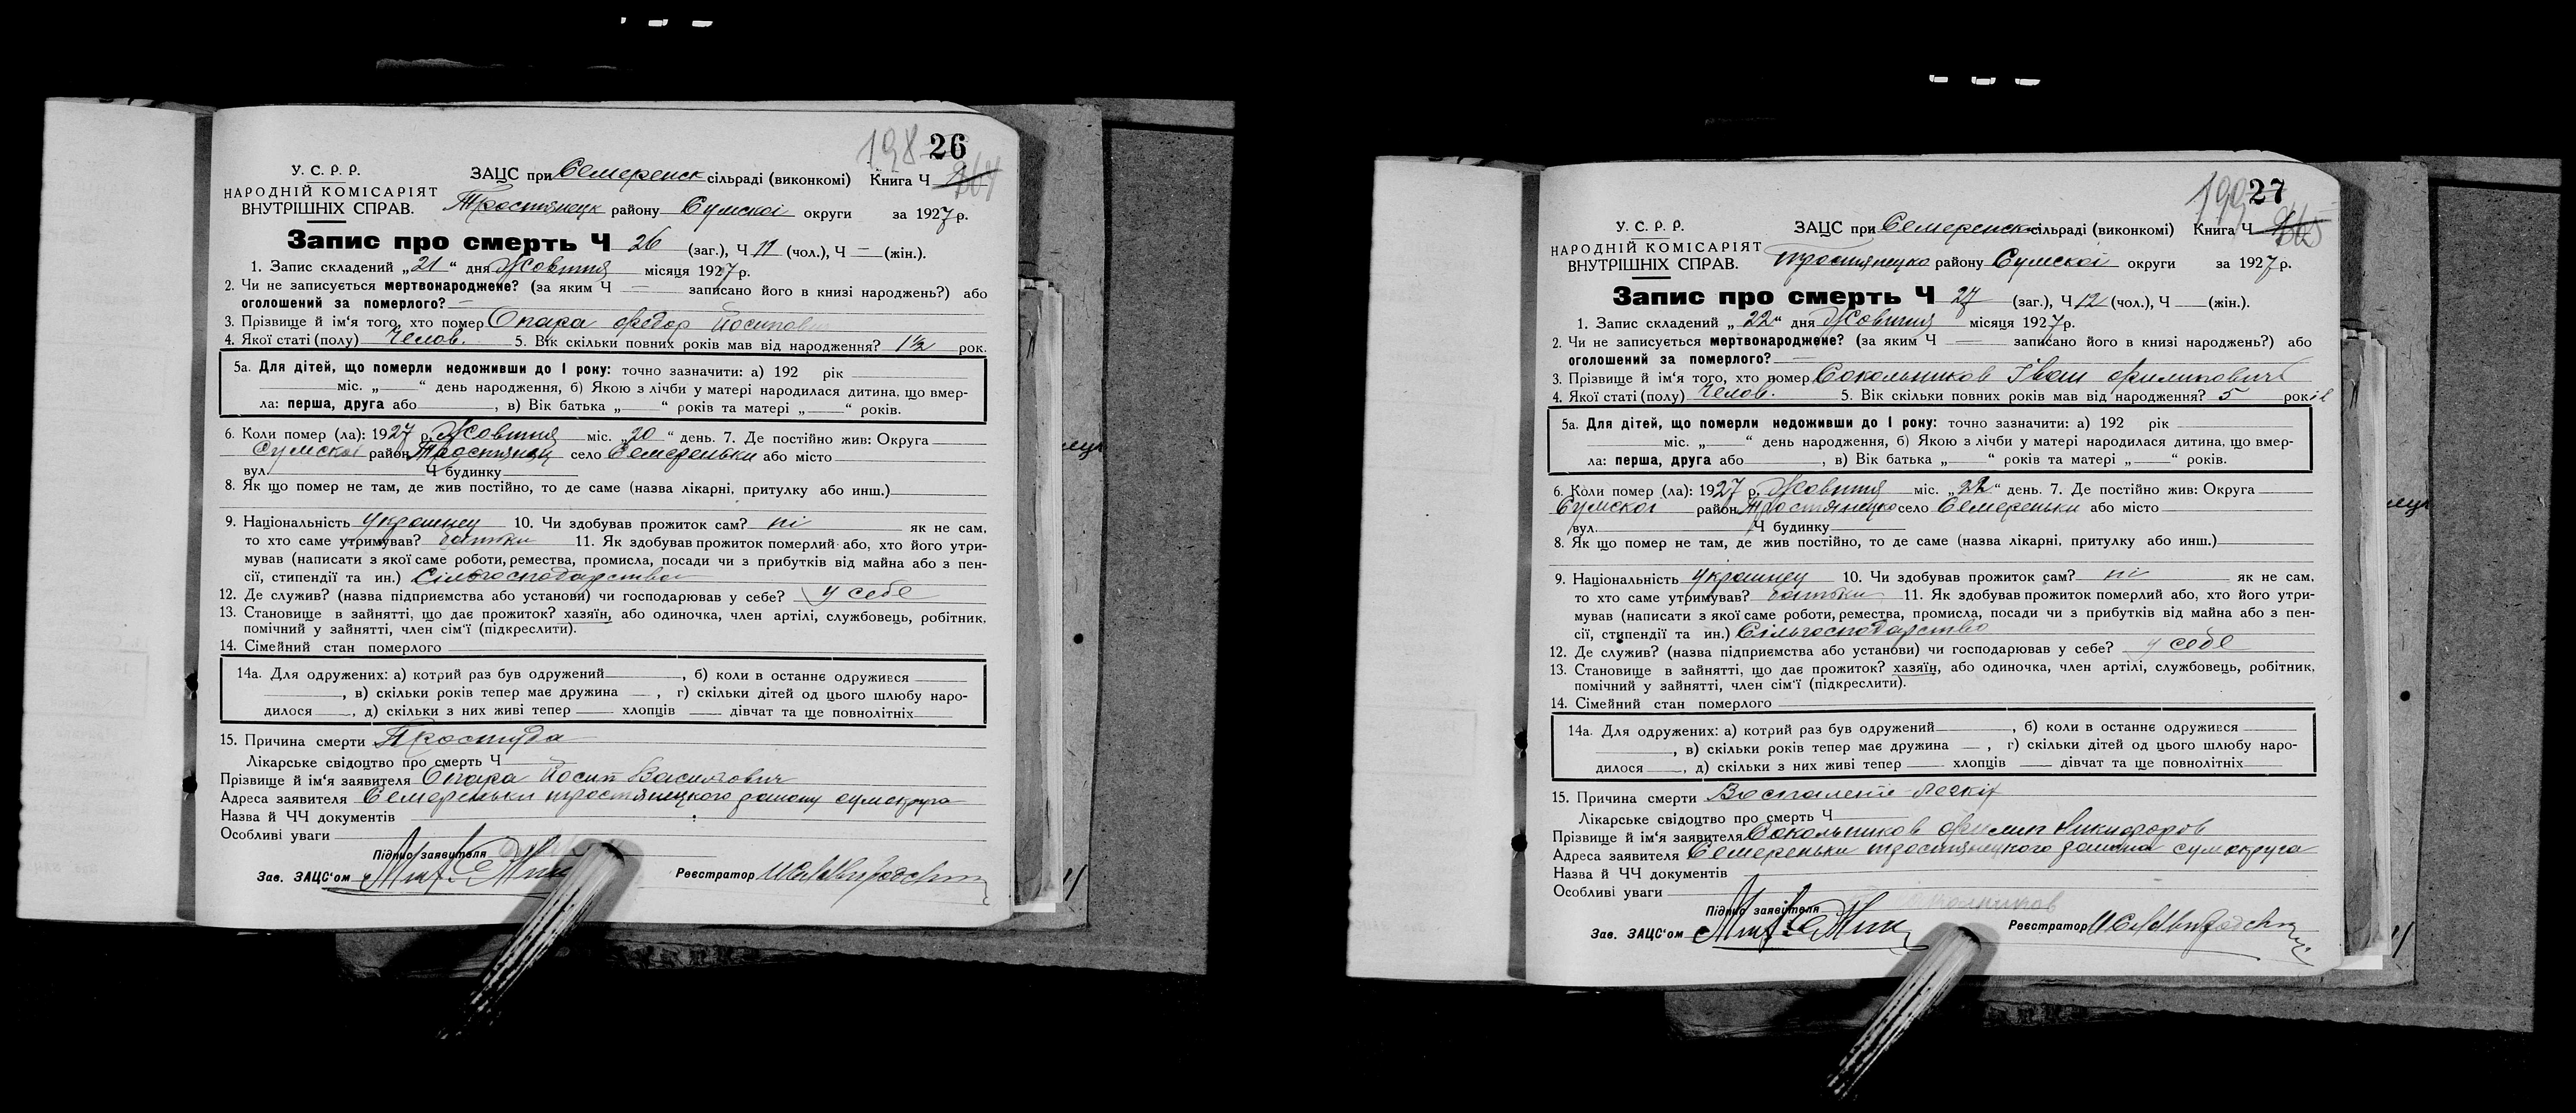 198 26
У. С. Р. Р.
НАРОДНІЙ КОМІСАРІЯТ
ВНУТРІШНІХ СПРАВ.
ЗАЦС при Семеренск сільраді (виконкомі) Книга Ч
Тростянецк району Сумскої округи за 1927 р.
Запис про смерть Ч 26 (заг.), Ч 11 (чол.), Ч — (жін.).
1. Запис складений „21“ дня Жовтня місяця 1927 р.
2. Чи не записується мертвонароджене? (за яким Ч — записано його в книзі народжень?) або
оголошений за померлого? —
3. Прізвище й ім‘я того, хто помер Опара Федор Йосипович
4. Якої статі (полу) Челов. 5. Вік скільки повних років мав від народження? 1½ рок.
5а. Для дітей, що померли недоживши до 1 року: точно зазначити: а) 192 рік
міс. „ “ день народження, б) Якою з лічби у матері народилася дитина, що вмер-
ла: перша, друга або , в) Вік батька „ “ років та матері „ “ років.
6. Коли помер (ла): 1927 р. Жовтня міс. „20“ день. 7. Де постійно жив: Округа
Сумскої район Тростянец село Семереньки або місто
вул. Ч будинку
8. Як що помер не там, де жив постійно, то де саме (назва лікарні, притулку або инш.)
9. Національність Украинец 10. Чи здобував прожиток сам? ні як не сам,
то хто саме утримував? батьки 11. Як здобував прожиток померлий або, хто його утри-
мував (написати з якої саме роботи, ремества, промисла, посади чи з прибутків від майна або з пен-
сії, стипендії та ин.) Сільгосподарство
12. Де служив? (назва підприємства або установи) чи господарював у себе? у себе
13. Становище в зайнятті, що дає прожиток? хазяїн, або одиночка, член артілі, службовець, робітник,
помічний у зайнятті, член сім‘ї (підкреслити).
14. Сімейний стан померлого
14а. Для одружених: а) котрий раз був одружений , б) коли в останнє одружився
, в) скільки років тепер має дружина , г) скільки дітей од цього шлюбу наро-
дилося , д) скільки з них живі тепер хлопців дівчат та ще повнолітніх
15. Причина смерти Простуда
Лікарське свідоцтво про смерть Ч
Прізвище й ім‘я заявителя Опара Йосип Васильович
Адреса заявителя Семереньки тростянецкого району сумокруга
Назва й ЧЧ документів
Особливі уваги
Підпис заявителя
Зав. ЗАЦС‘ом Реєстратор
199 27
У. С. Р. Р.
НАРОДНІЙ КОМІСАРІЯТ
ВНУТРІШНІХ СПРАВ.
ЗАЦС при Семеренск сільраді (виконкомі) Книга Ч
Тростянецко району Сумскої округи за 1927 р.
Запис про смерть Ч 27 (заг.), Ч 12 (чол.), Ч — (жін.).
1. Запис складений „22“ дня Жовтня місяця 1927 р.
2. Чи не записується мертвонароджене? (за яким Ч — записано його в книзі народжень?) або
оголошений за померлого? —
3. Прізвище й ім‘я того, хто помер Сокольников Іван Филипович
4. Якої статі (полу) Челов. 5. Вік скільки повних років мав від народження? 5 років
5а. Для дітей, що померли недоживши до 1 року: точно зазначити: а) 192 рік
міс. „ “ день народження, б) Якою з лічби у матері народилася дитина, що вмер-
ла: перша, друга або , в) Вік батька „ “ років та матері „ “ років.
6. Коли помер (ла): 1927 р. Жовтня міс. „22“ день. 7. Де постійно жив: Округа
Сумскої район Тростянецко село Семереньки або місто
вул. Ч будинку
8. Як що помер не там, де жив постійно, то де саме (назва лікарні, притулку або инш.)
9. Національність Украинец 10. Чи здобував прожиток сам? ні як не сам,
то хто саме утримував? батьки 11. Як здобував прожиток померлий або, хто його утри-
мував (написати з якої саме роботи, ремества, промисла, посади чи з прибутків від майна або з пен-
сії, стипендії та ин.) Сільгосподарство
12. Де служив? (назва підприємства або установи) чи господарював у себе? у себе
13. Становище в зайнятті, що дає прожиток? хазяїн, або одиночка, член артілі, службовець, робітник,
помічний у зайнятті, член сім‘ї (підкреслити).
14. Сімейний стан померлого
14а. Для одружених: а) котрий раз був одружений , б) коли в останнє одружився
, в) скільки років тепер має дружина , г) скільки дітей од цього шлюбу наро-
дилося , д) скільки з них живі тепер хлопців дівчат та ще повнолітніх
15. Причина смерти Воспаленіе легкіх
Лікарське свідоцтво про смерть Ч
Прізвище й ім‘я заявителя Сокольников Филип Никифоров
Адреса заявителя Семереньки тростянецкого району сумокруга
Назва й ЧЧ документів
Особливі уваги
Підпис заявителя
Зав. ЗАЦС‘ом Реєстратор